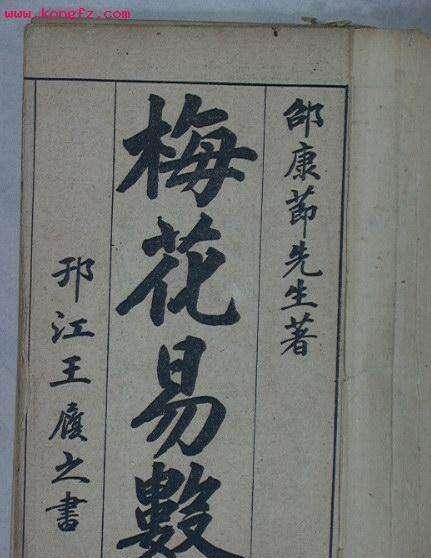 www.kongfz.com
邵康節先生著
梅花易數
邗江王履之書